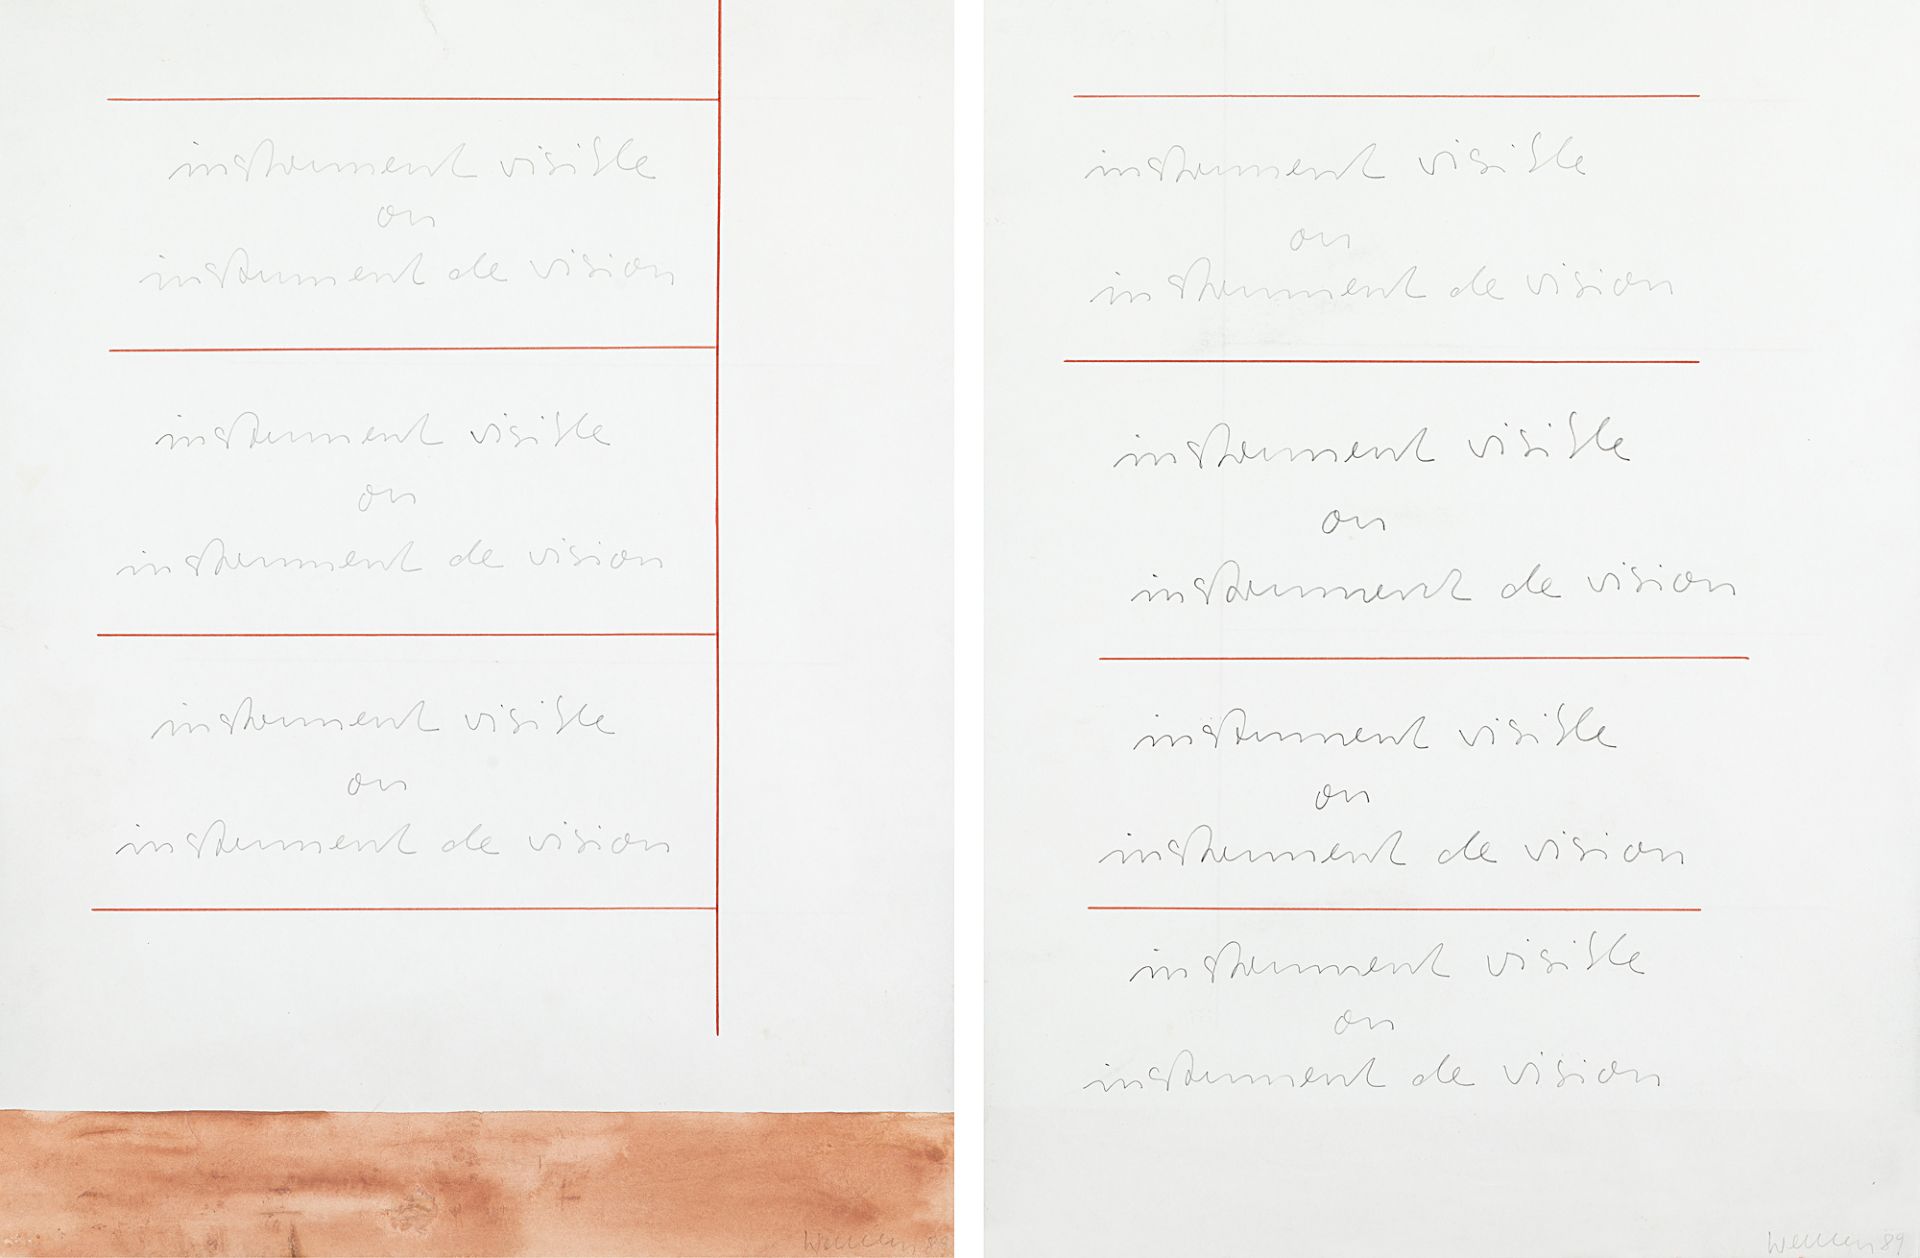 instrument visible
ou
instrument de vision
instrument visible
ou
instrument de vision
instrument visible
ou
instrument de vision
instrument visible
ou
instrument de vision
instrument visible
ou
instrument de vision
instrument visible
ou
instrument de vision
instrument visible
ou
instrument de vision
89